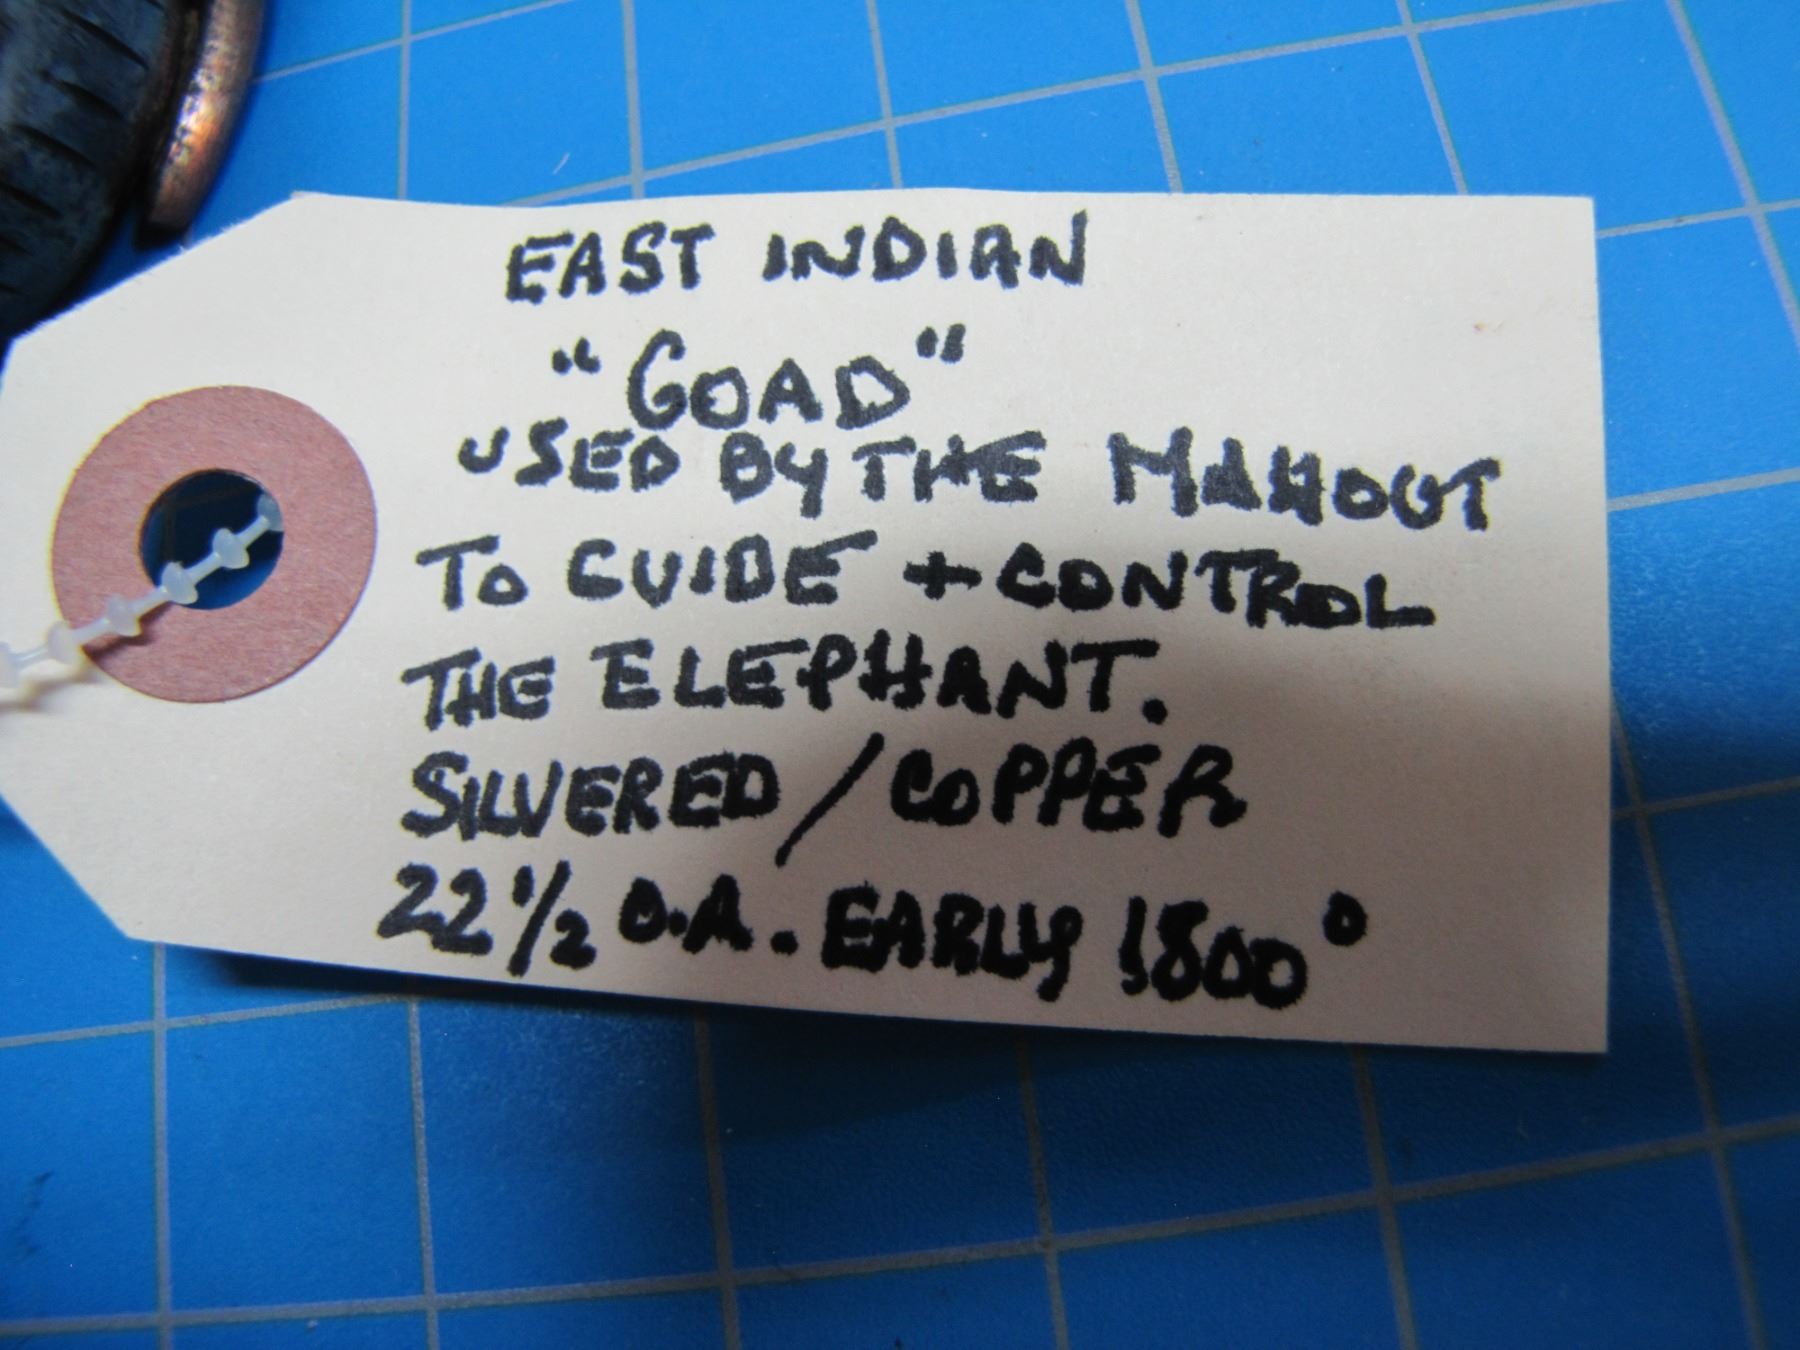 EAST INDIAN
"GOAD"
USED BY THE MAHOUT
TO GUIDE + CONTROL
THE ELEPHANT.
SILVERED / COPPER
22 1/2 O.A. EARLY 1800°